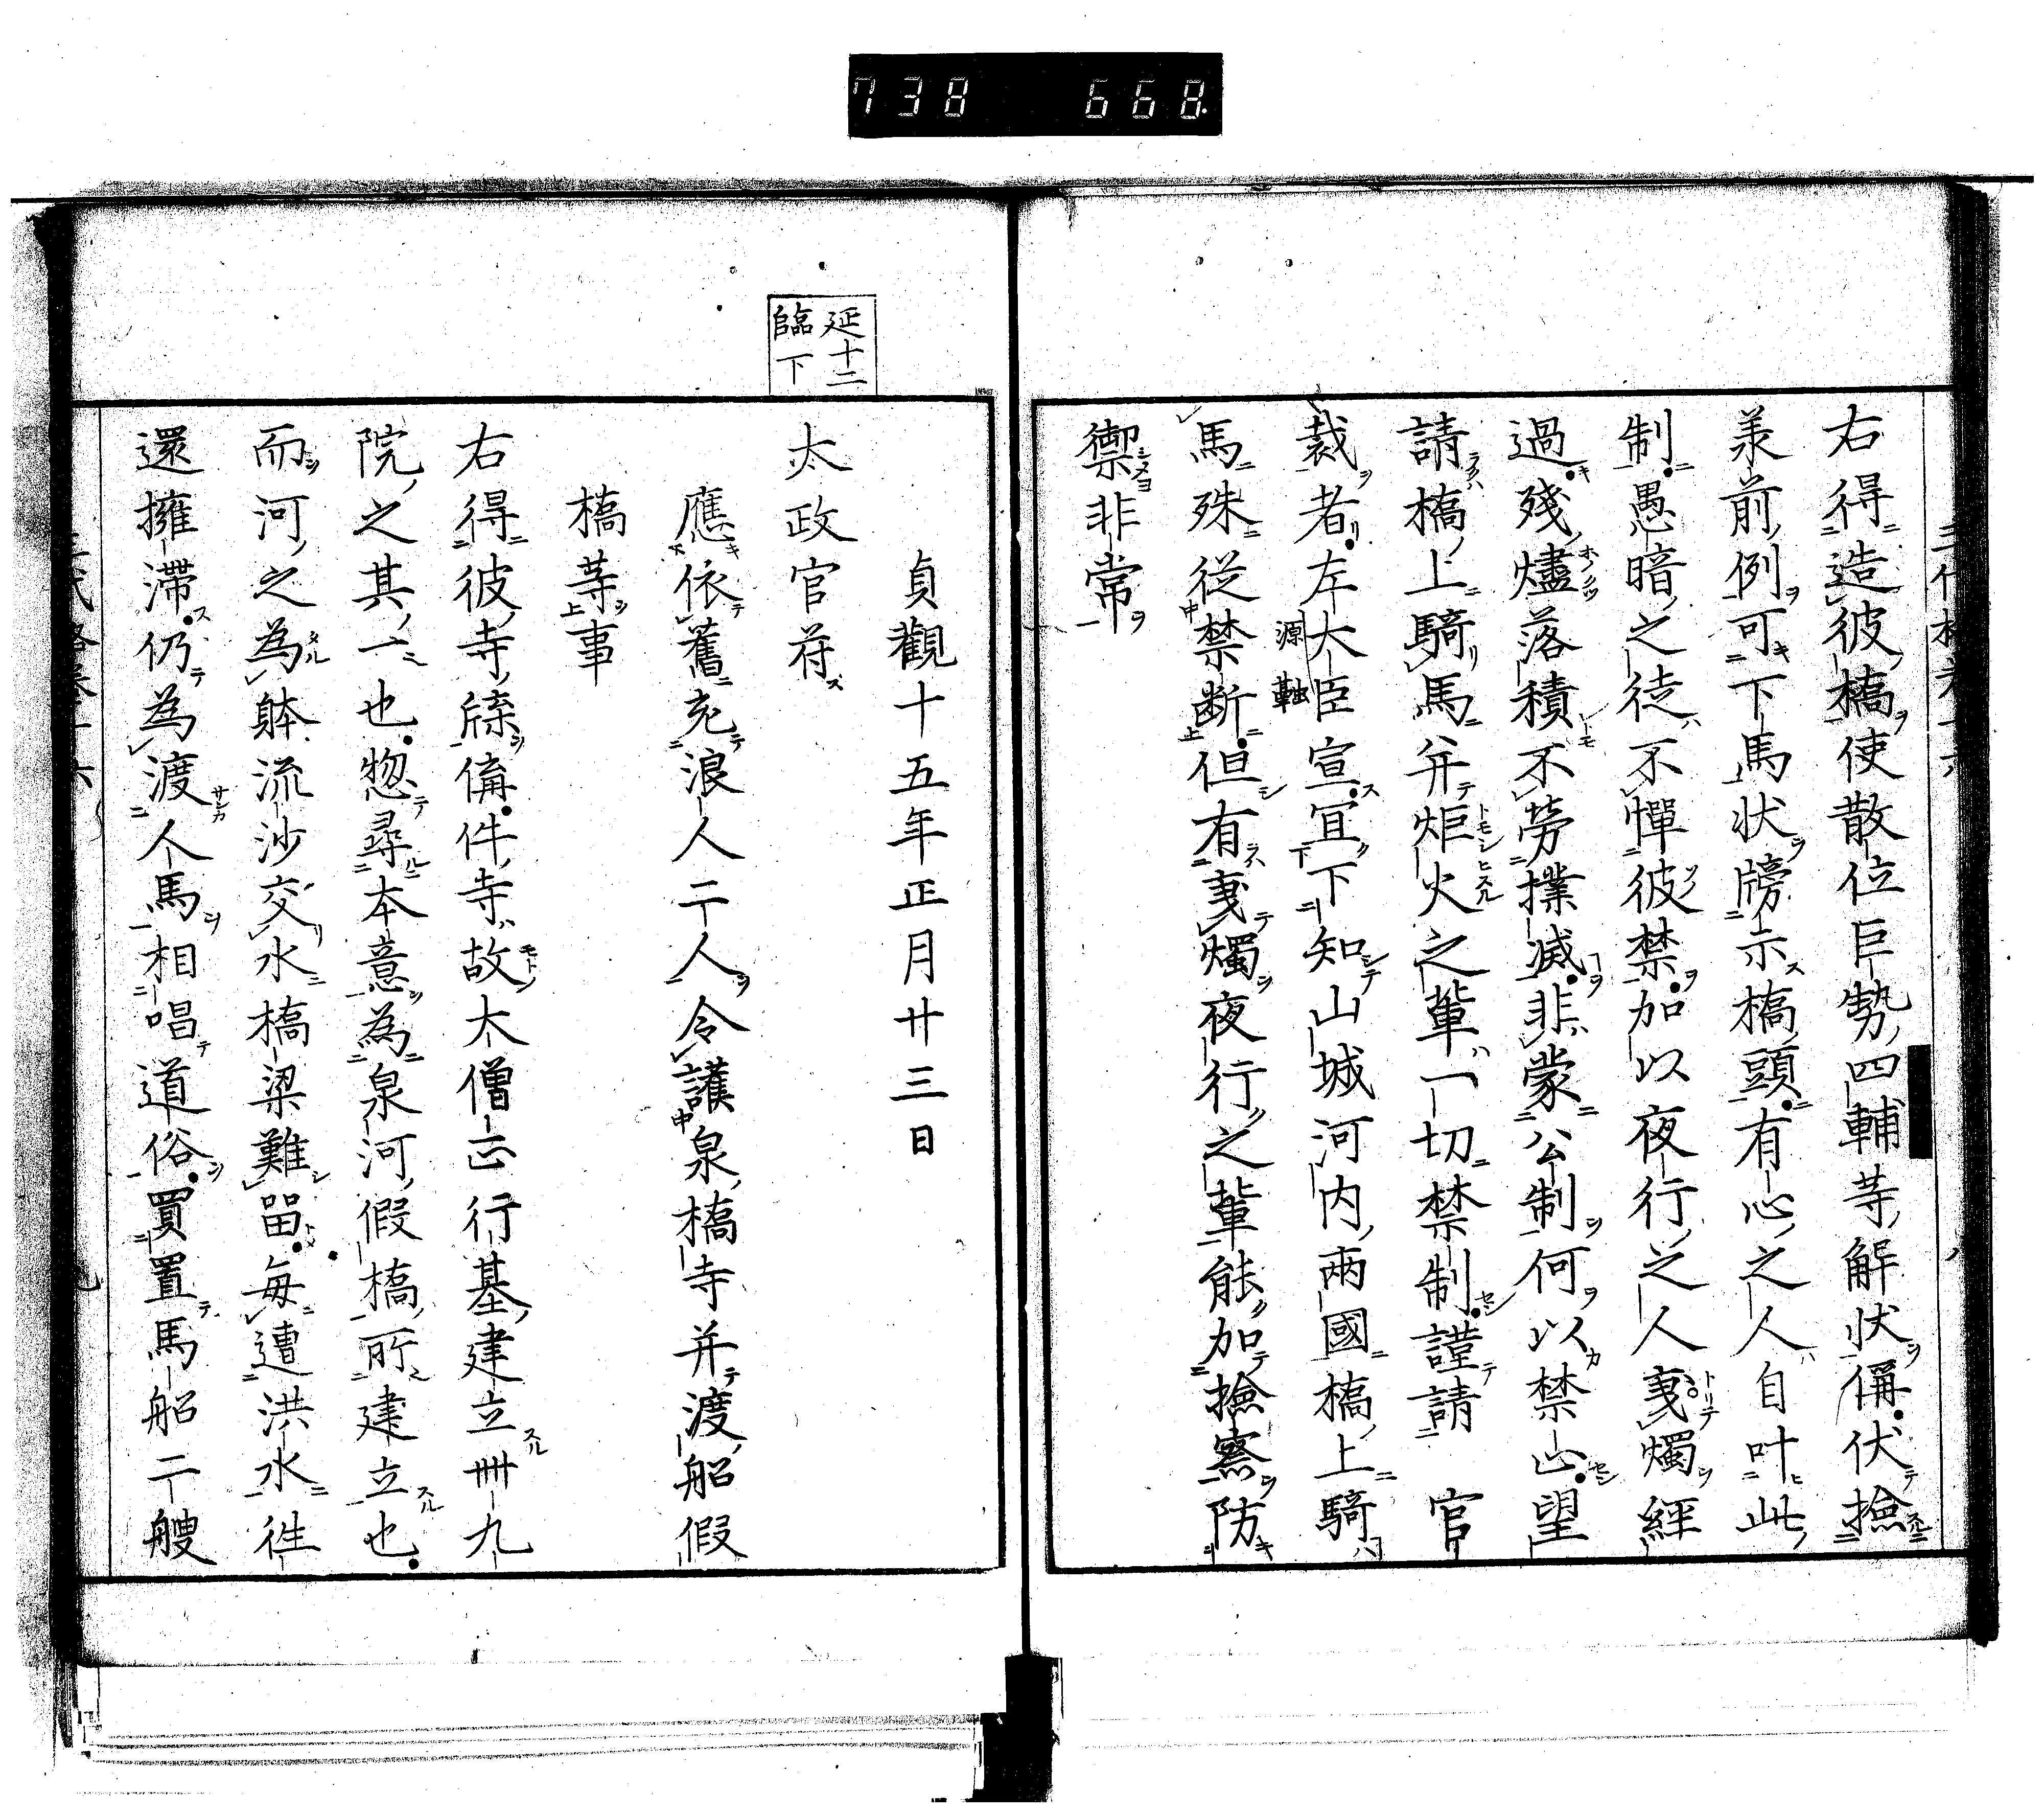 738 668
右得造彼橋使散位巨勢四輔等解状偁伏撿
羕前例可下馬状牓示橋頭有心之人自叶此
制愚暗之徒不憚彼禁加以夜行之人𡙇燭經
過殘燼落積不勞撲滅非蒙公制何以禁止望
請橋上騎馬并炬火之輩一切禁制謹請官
裁者左大臣宣冝下知山城河内兩國橋上騎
源融
馬殊從禁断但有𡙇燭夜行之輩能加撿察防
禦非常
貞觀十五年正月廿三日
延十二
臨下
太政官苻
應依舊充浪人二人令護泉橋寺并渡船假
橋等事
右得彼寺牒偁件寺故大僧正行基建立卌九
院之其一也惣尋本意為泉河假橋所建立也
而河之為躰流沙交水橋梁難留毎遭洪水徃
還擁滯仍為渡人馬相唱道俗買置馬船二艘